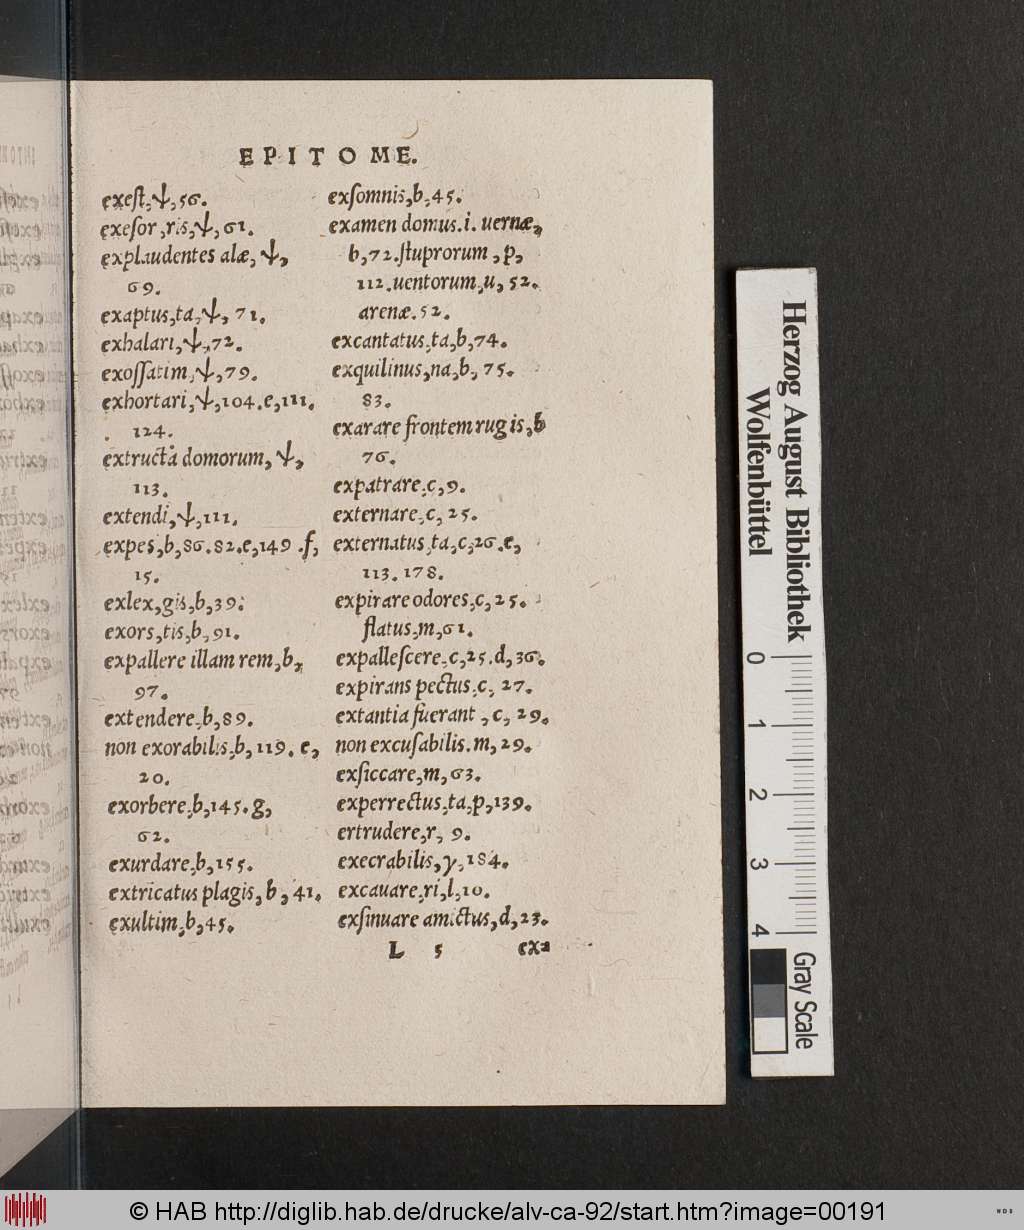 EPITOME.
exest,ψ,56.
exesor,ris,ψ,61.
explaudentes alæ,ψ,
69.
exaptus,ta,ψ, 71.
exhalari,ψ,72.
exossatim,ψ,79.
exhortari,ψ,104.e,111.
124.
extructa domorum, ψ,
113.
extendi,ψ,111.
expes,b,86.82.e,149.f,
15.
exlex,gis,b,39.
exors,tis,b,91.
expallere illam rem,b,
97.
extendere,b,89.
non exorabilis,b,119. e,
20.
exorbere,b,145.g,
62.
exurdare,b,155.
extricatus plagis, b, 41.
exultim,b,45.
exſomnis,b,45.
examen domus.i. uernæ,
b,72.ſtuprorum, p,
112.uentorum,u, 52.
arenæ.52.
excantatus,ta,b,74.
exquilinus,na,b, 75.
83.
exarare frontem rugis,b
76.
expatrare,c,9.
externare,c, 25.
externatus,ta,c,26.e,
113.178.
expirare odores,c,25.
flatus,m,61.
expalleſcere,c,25.d,36.
expirans pectus,c, 27.
extantia fuerant, c, 29.
non excuſabilis.m,29.
exſiccare,m,63.
experrectus,ta,p,139.
ertrudere,r, 9.
execrabilis,γ,184.
excauare,ri,l,10.
exſinuare amictus,d,23.
L 5 exa
Herzog August Bibliothek
Wolfenbüttel
0 1 2 3 4
Gray Scale
© HAB http://diglib.hab.de/drucke/alv-ca-92/start.htm?image=00191